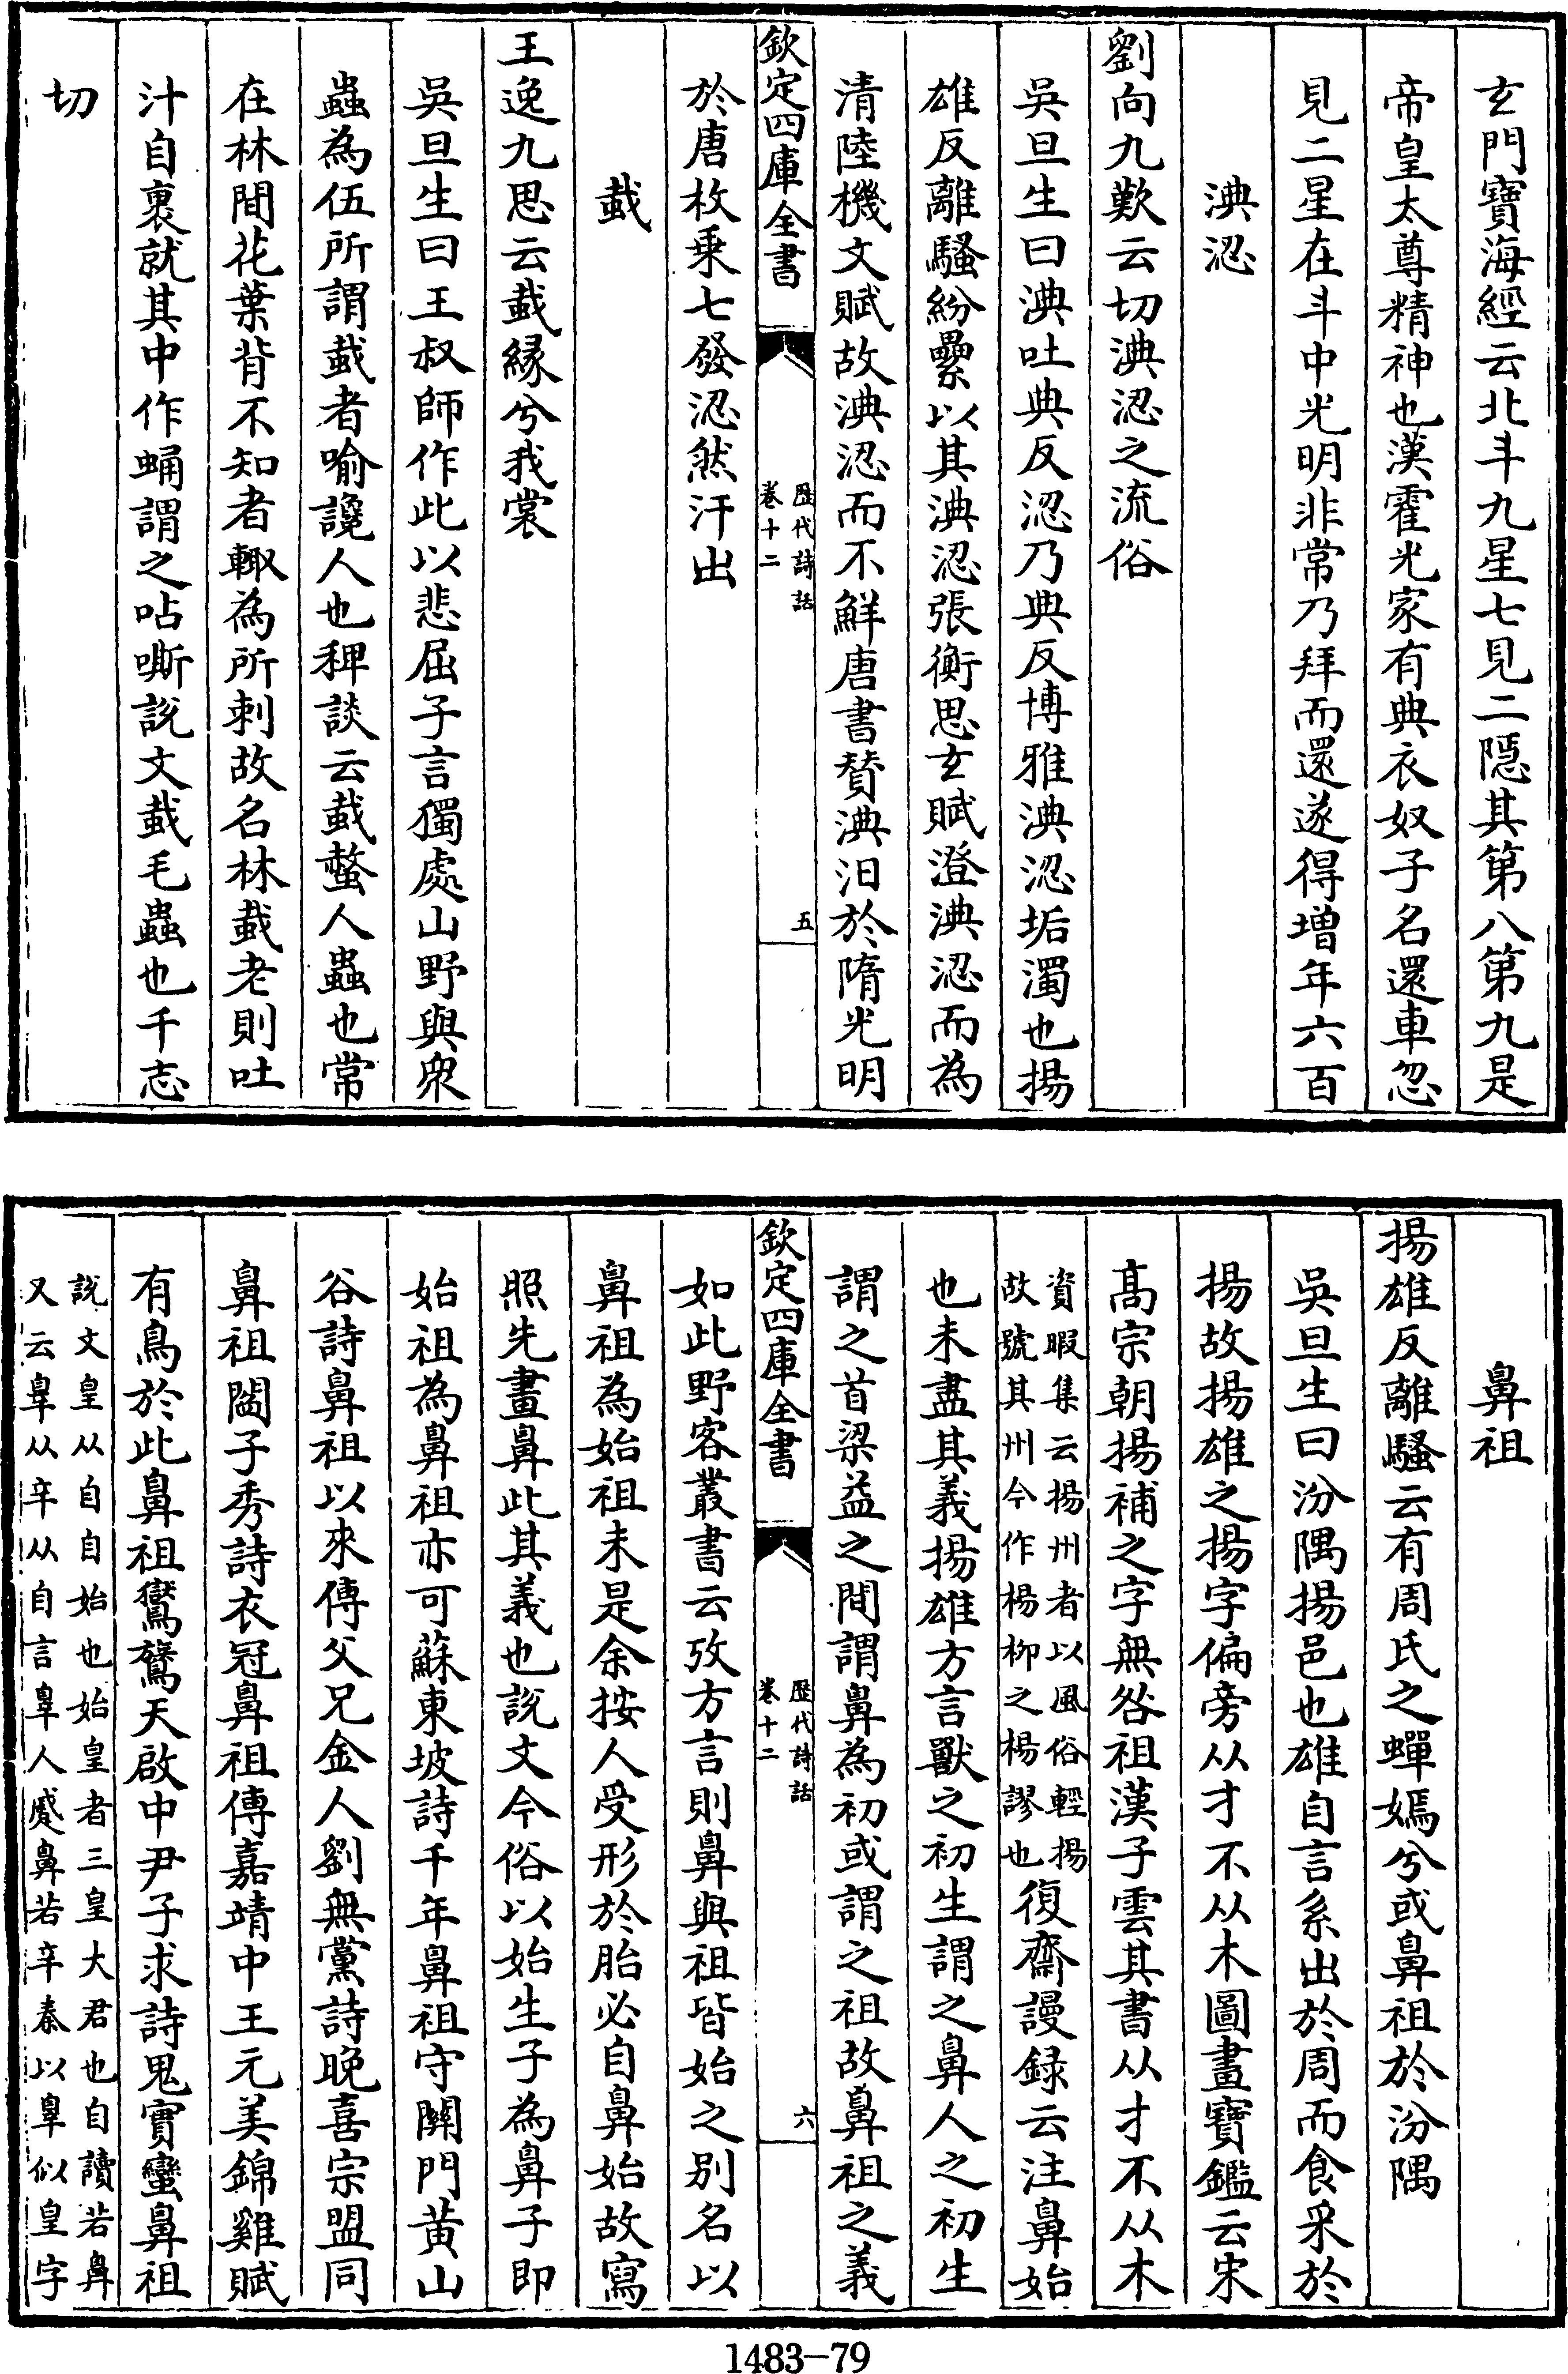 玄門寶海經云北斗九星七見二隱其第八第九是
帝皇太尊精神也漢霍光家有典衣奴子名還車忽
見二星在斗中光明非常乃拜而還遂得增年六百
淟涊
劉向九歎云切淟涊之流俗
吳旦生曰淟吐典反涊乃典反博雅淟涊垢濁也揚
雄反離騷紛纍以其淟涊張衡思玄賦澄淟涊而為
清陸機文賦故淟涊而不鮮唐書贊淟汨於隋光明
欽定四庫全書
歷代詩話
卷十二
五
於唐枚乗七發涊然汗出
蛓
王逸九思云蛓緣兮我裳
吳旦生曰王叔師作此以悲屈子言獨處山野與衆
蟲為伍所謂蛓者喻讒人也稗談云蛓螫人蟲也常
在林間花葉背不知者輙為所刺故名林蛓老則吐
汁自裹就其中作蛹謂之呫嘶說文蛓毛蟲也千志
切
鼻祖
揚雄反離騷云有周氏之蟬嫣兮或鼻祖於汾隅
吳旦生曰汾隅揚邑也雄自言系出於周而食采於
揚故揚雄之揚字偏旁从才不从木圖畫寶鑑云宋
髙宗朝揚補之字無咎祖漢子雲其書从才不从木
資暇集云揚州者以風俗輕揚
故號其州今作楊柳之楊謬也
復齋謾録云注鼻始
也未盡其義揚雄方言獸之初生謂之鼻人之初生
謂之首梁益之間謂鼻為初或謂之祖故鼻祖之義
欽定四庫全書
歷代詩話
卷十二
六
如此野客叢書云攷方言則鼻與祖皆始之别名以
鼻祖為始祖未是余按人受形於胎必自鼻始故寫
照先畫鼻此其義也說文今俗以始生子為鼻子即
始祖為鼻祖亦可蘇東坡詩千年鼻祖守關門黄山
谷詩鼻祖以來傳父兄金人劉無黨詩晚喜宗盟同
鼻祖閻子秀詩衣冠鼻祖傳嘉靖中王元美錦雞賦
有鳥於此鼻祖鸑鷟天啟中尹子求詩鬼實蠻鼻祖
說文皇从自自始也始皇者三皇大君也自讀若鼻
又云辠从辛从自言辠人蹙鼻若辛秦以辠似皇字
1483-79